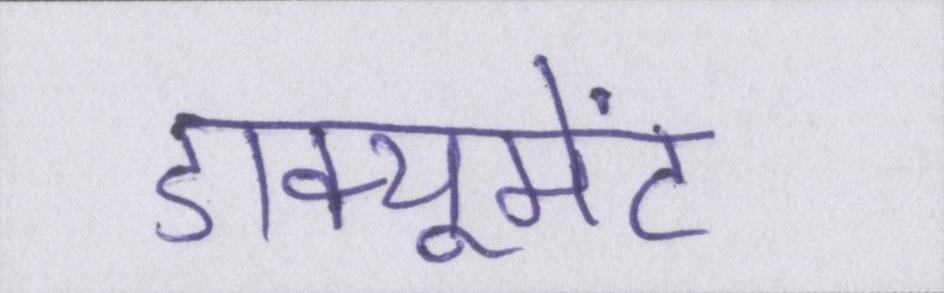 डाक्यूमेंट